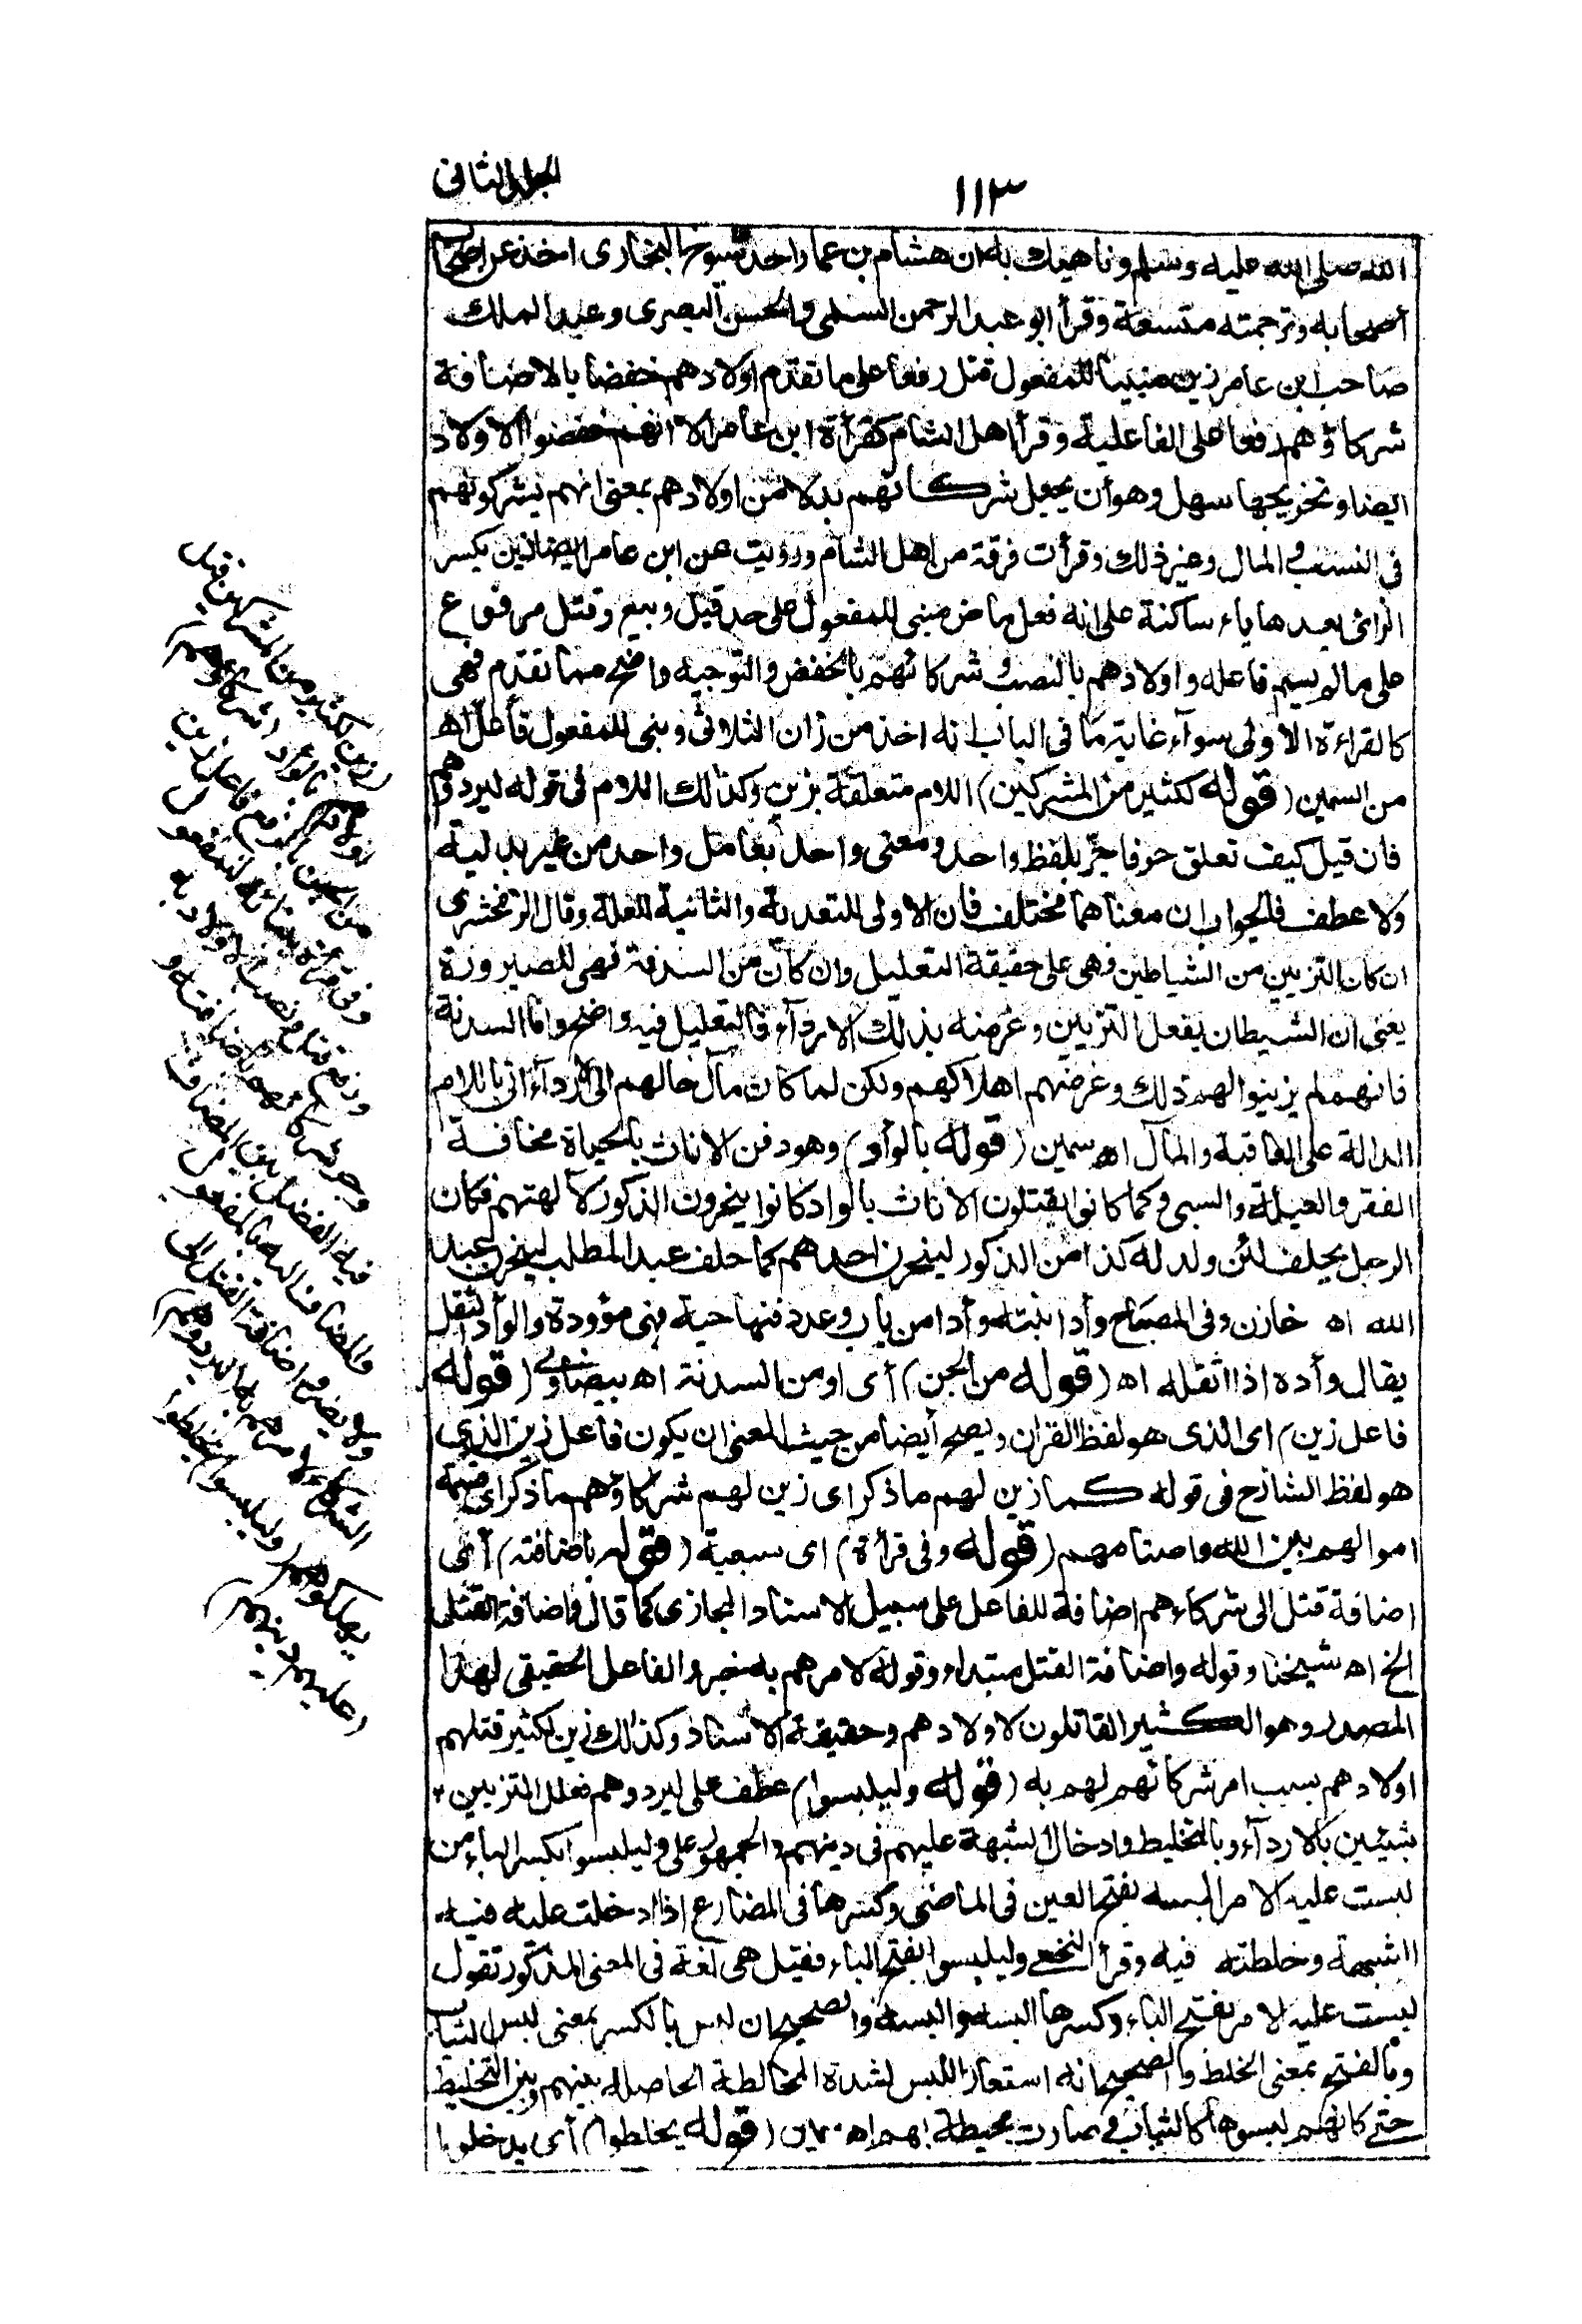 ١١٣
الجلد الثانى
الله صلى الله عليه وسلم وناهيك به ان هشام بن عمار احد شيوخ البخارى اخذ عن اصحاب
أصحابه وترجمته متسعة وقرأ ابو عبد الرحمن السلمى والحسن البصرى وعبد الملك
صاحب ابن عامر زين مبنيا للمفعول قتل رفعا على ما تقدم اولادهم خفضا بالاضافة
شركاؤهم رفعا على الفاعلية وقرأ اهل الشام كقرأة ابن عامر الا انهم خفضوا الاولاد
ايضا وتخريجها سهل وهو أن يجعل شركائهم بدلا من اولادهم بمعنى انهم يشركونهم
فى النسب والمال وغير ذلك وقرأت فرقة من اهل الشام ورويت عن ابن عامر ايضا زين بكسر
الزاى بعدها ياء ساكنة على انه فعل ماض مبنى للمفعول على حد قيل وبيع وقتل مرفوع
على ما لم يسم فاعله واولادهم بالنصب وشركائهم بالخفض والتوجيه واضح مما تقدم فهى
كالقراءة الاولى سوآء غاية ما فى الباب انه اخذ من زان الثلاثى وبنى للمفعول فأعل اهـ
من السمين (قوله لكثير من المشركين) اللام متعلقة بزين وكذلك اللام فى قوله ليردوهم
فان قيل كيف تعلق حرفا جر بلفظ واحد ومعنى واحد بعامل واحد من غير بدلية
ولا عطف فالجواب ان معناهما مختلف فان الاولى للتعدية والثانية للعلة وقال الزمخشرى
ان كان التزيين من الشياطين فهى على حقيقة التعليل وان كان من السدنة فهى للصيرورة
يعنى ان الشيطان يفعل التزيين وغرضه بذلك الاردآء فالتعليل فيه واضح واما السدنة
فانهم لم يزينوا لهم ذلك وغرضهم اهلاكهم ولكن لما كان مآل حالهم الى الاردآء اتى باللام
الدالة على العاقبة والمآل اهـ سمين (قوله بالوأد) وهو دفن الاناث بالحياة مخافة
الفقر والعيلة والسبى وكما كانوا يقتلون الاناث بالواد كانوا ينحرون الذكور لآلهتهم فكان
الرجل يحلف لئن ولد له كذا من الذكور لينحرن احدهم كما حلف عبد المطلب لينحرن عبد
الله اهـ خازن وفى المصباح وأد ابنته وأدا من باب وعد دفنها حية فهى مؤودة والوأد الثقل
يقال وأده اذا اثقله اهـ (قوله من الجن) أى او من السدنة اهـ بيضاوى (قوله
فاعل زين) اى الذى هو لفظ القران ويصح أيضا من حيث المعنى ان يكون فاعل زين الذى
هو لفظ الشارح فى قوله كما زين لهم ما ذكر اى زين لهم شركاؤهم ما ذكر اى قسمة
اموالهم بين الله واصنامهم (قوله وفى قرأة) اى سبعية (قوله باضافته) أى
اضافة قتل الى شركاءهم اضافة للفاعل على سبيل الاسناد المجازى كما قال واضافة القتل
الخ اهـ شيخنا وقوله واضافة القتل مبتداء وقوله لامرهم به خبر والفاعل الحقيقى لهذا
المصدر وهو الكثير القاتلون لاولادهم وحقيقة الاسناد وكذلك زين لكثير قتلهم
اولادهم بسبب امر شركائهم لهم به (قوله وليلبسوا) عطف على ليردوهم فعلل التزيين
بشيئين بالاردآء وبالتخليط وادخال الشبهة عليهم فى دينهم والجمهور على وليلبسوا بكسر الباء من
لبست عليه الامر البسه بفتح العين فى الماضى وكسرها فى المضارع اذا ادخلت عليه فيه
الشبهة وخلطته فيه وقرأ النخعى وليلبسوا بفتح الباء فقيل هى لغة فى المعنى المذكور تقول
لبست عليه الامر بفتح الباء وكسرها البسه والبسه والصحيح ان لبس بالكسر بمعنى لبس الثياب
وبالفتح بمعنى الخلط والصحيح انه استعار اللبس لشدة المخالطة الحاصلة بينهم وبين التخليط
حتى كانهم لبسوها كالثياب وصارت محيطة بهم اهـ سمين (قوله يخلطوا) أى يدخلوا
زين لكثير من المشركين قتل
اولادهم بالوأد شركاؤهم
من الجن بالرفع فاعل زين
وفى قرأة ببنائه للمفعول
ورفع قتل ونصب الاولاد به
وجر شركائهم باضافته و
فيه الفصل بين المضاف
والمضاف اليه بالمفعول
ولا يضر واضافة القتل الى
الشركاء لامرهم به ليردوهم
يهلكوهم وليلبسوا يخلطوا
عليهم دينهم